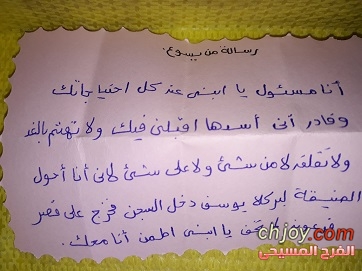 رسالة من يسوع:
أنا مسئول يا ابنى عن كل احتياجاتك
وقادر أنى أسدها اقبلنى فيك ولا تهتم بالغد
ولا تقلقه لا من شئ ولا على شئ لأنى أنا أحول
الضيقة لبركة يوسف دخل السجن فخرج على قصر
لا تخف يا ابنى اطمن أنا معك.
chjoy.com
الفرح المسيحى